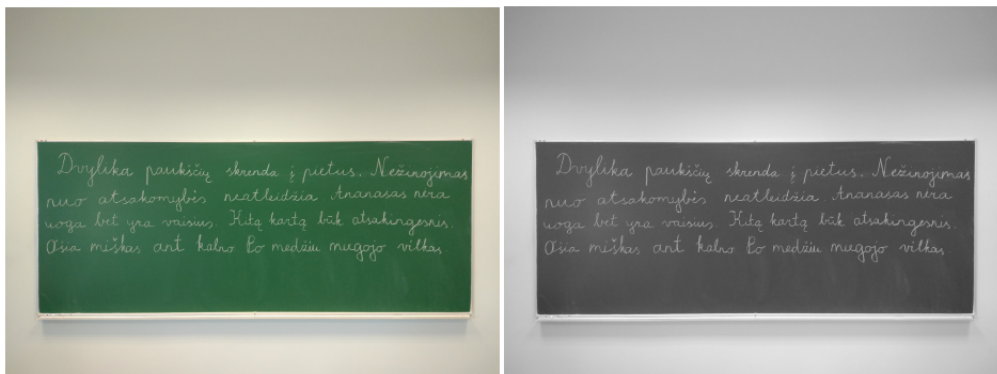 Dvylika paukščių skrenda į pietus. Nežinojimas
nuo atsakomybės neatleidžia. Ananasas nėra
uoga bet yra vaisius. Kitą kartą būk atsakingesnis.
Ošia miškas ant kalno. Po medžiu miegojo vilkas
Dvylika paukščių skrenda į pietus. Nežinojimas
nuo atsakomybės neatleidžia. Ananasas nėra
uoga bet yra vaisius. Kitą kartą būk atsakingesnis.
Ošia miškas ant kalno. Po medžiu miegojo vilkas